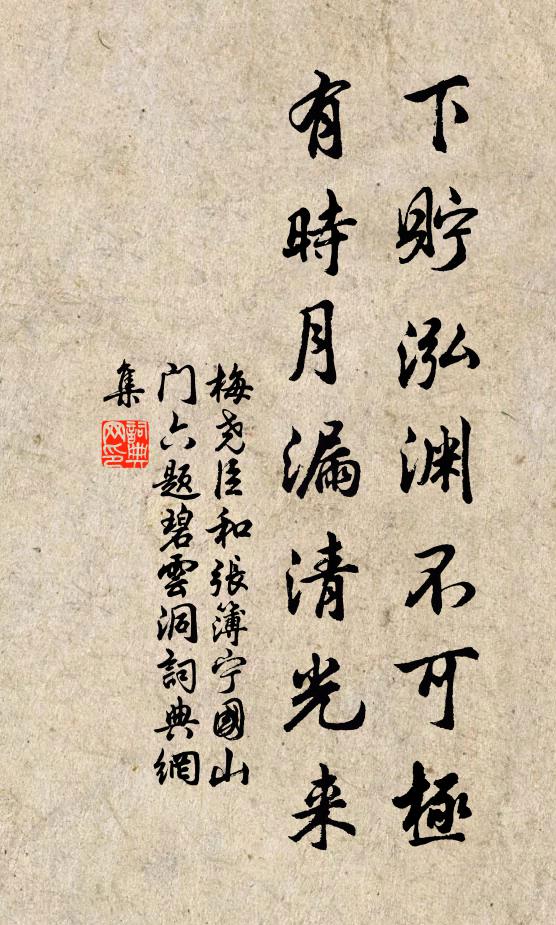 下貯泓渊不可極
有時月漏清光来
梅尧臣和張簿宁國山
门六题碧雲洞詞典網
集
詞典
网印